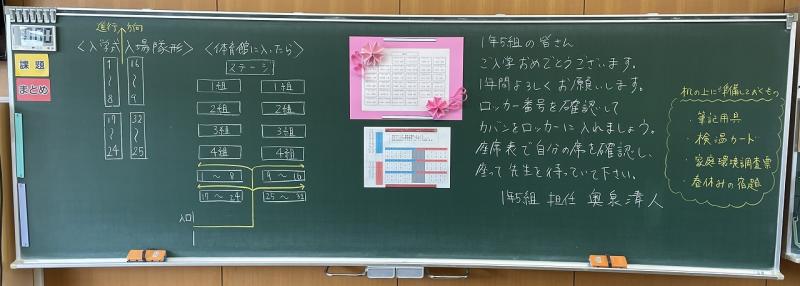 進行方向
<入学式入場隊形>
<体育館に入ったら>
課題
まとめ
1 〜 8
16 〜 9
17 〜 24
32 〜 25
ステージ
1組 1組
2組 2組
3組 3組
4組 4組
1 〜 8 9 〜 16
17 〜 24 25 〜 32
入口
1年5組の皆さん
ご入学おめでとうございます。
1年間よろしくお願いします。
ロッカー番号を確認して
カバンをロッカーに入れましょう。
座席表で自分の席を確認し、
座って先生を待っていて下さい。
1年5組 担任 奥泉 準人
机の上に準備しておくもの
・筆記用具
・検温カード
・家庭環境調査票
・春休みの宿題